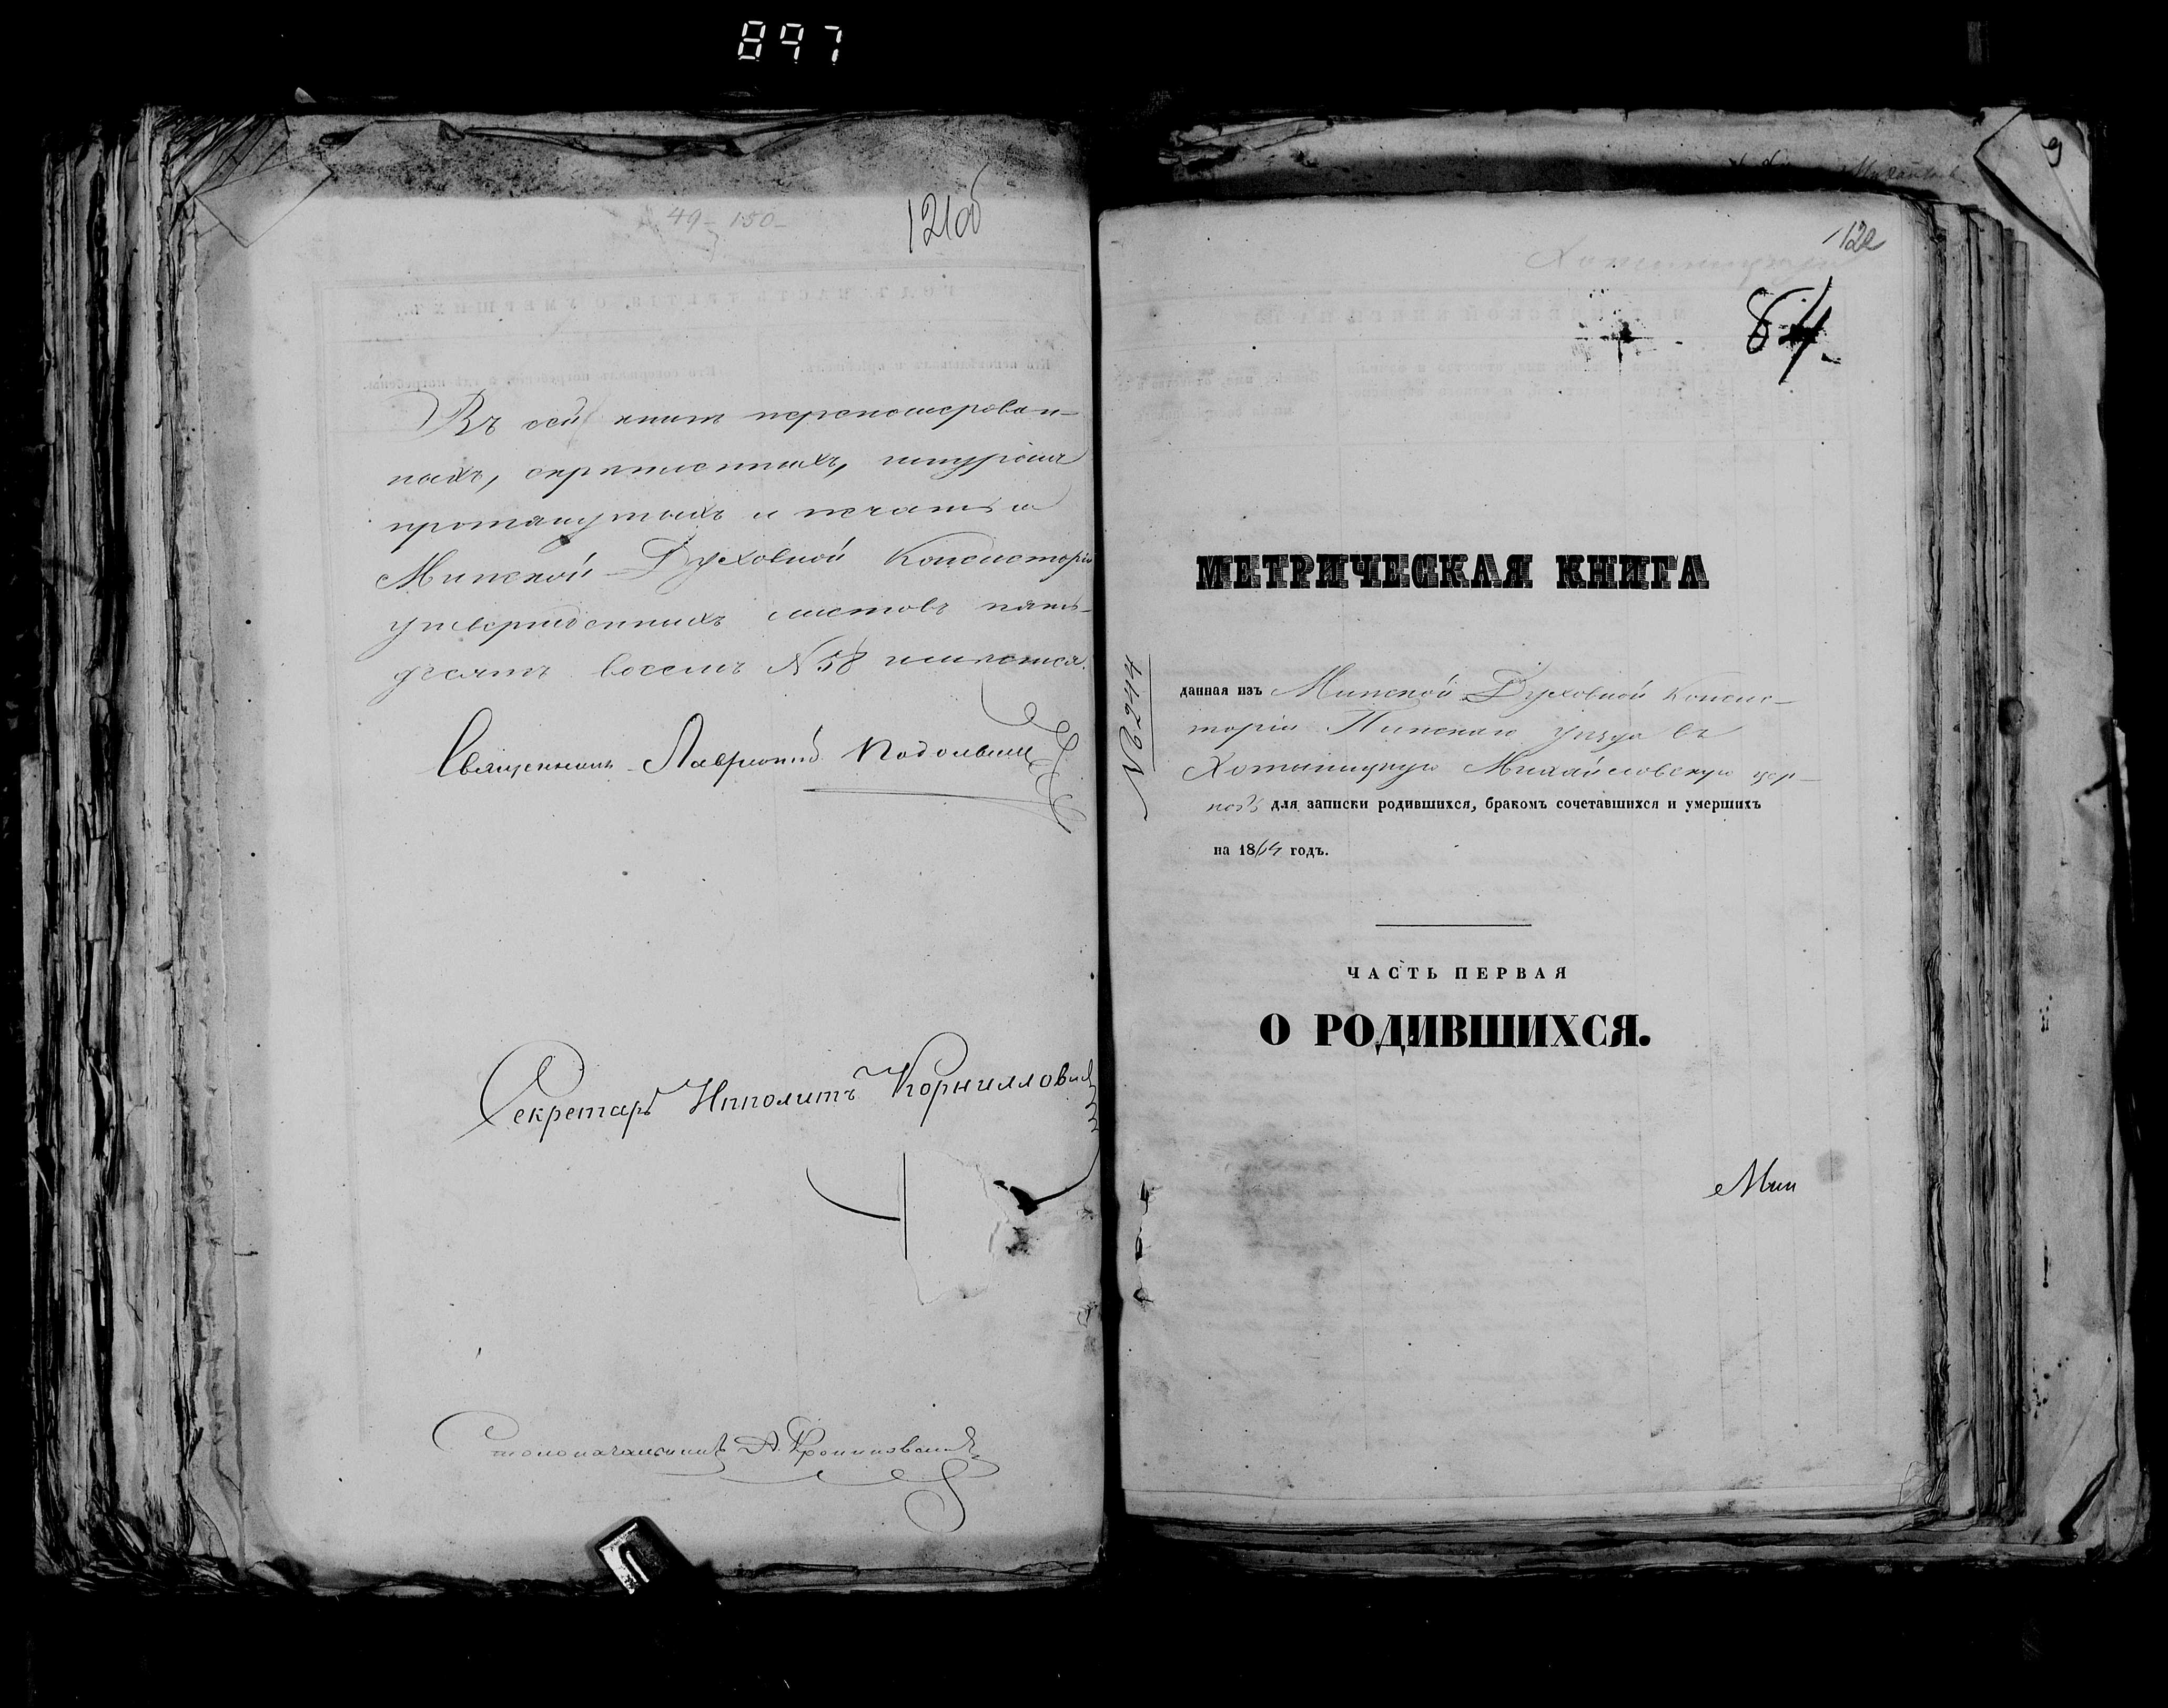 897
49 - 150 -
121 об
Въ сей книгѣ перенумерован-
ныхъ, скрѣпленныхъ, шнуромъ
протянутыхъ и печатью
Минской Духовной Консисторіи
утвержденныхъ листовъ пять-
десятъ восемь N 58 имѣется.
Священникъ Лаврентій
Секретарь Ипполитъ Корнилловичъ
Столоначальникъ А.
122
84.
МЕТРИЧЕСКАЯ КНИГА
N 6244
данная изъ Минской Духовной Консис-
торіи Пинскаго уѣзда въ
Хотыницкую Михайловскую цер-
ковь для записки родившихся, бракомъ сочетавшихся и умершихъ
на 1864 годъ.
ЧАСТЬ ПЕРВАЯ
О РОДИВШИХСЯ.
Мин